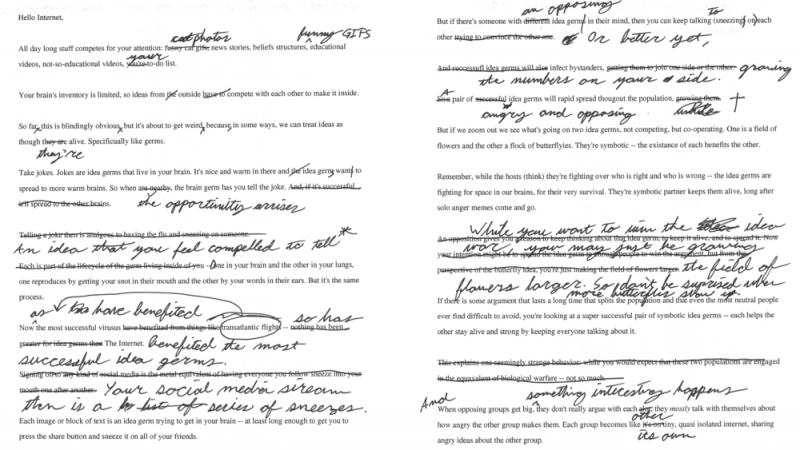 Hello Internet,
cat photos funny GIFS
All day long stuff competes for your attention: funny cat gifs, news stories, beliefs structures, educational
your
videos, not-so-educational videos, you're to-do list.
Your brain's inventory is limited, so ideas from the outside have to compete with each other to make it inside.
So far, this is blindingly obvious, but it's about to get weird, because in some ways, we can treat ideas as
though they are alive. Specifically like germs.
they're
Take jokes. Jokes are idea germs that live in your brain. It's nice and warm in there and the idea germ wants to
spread to more warm brains. So when are nearby, the brain germ has you tell the joke. And, if it's successful
it'll spread to the other brains. the opportunity arrises
Telling a joke then is analgous to having the flu and sneezing on someone.
An idea that you feel compelled to tell *
Each is part of the lifecycle of the germ living inside of you - One in your brain and the other in your lungs,
one reproduces by getting your snot in their mouth and the other by your words in their ears. But it's the same
process.
as have benefited so has
Now the most successful virusus have benefited from things like transatlantic flights -- nothing has been
greater for idea germs then The Internet. benefited the most
successful idea germs.
Signing on to any kind of social media is the metal equivalent of having everyone you follow sneeze into your
mouth one after another. Your social media stream
then is a list of series of sneezes.
Each image or block of text is an idea germ trying to get in your brain -- at least long enough to get you to
press the share button and sneeze it on all of your friends.
an opposing
But if there's someone with different idea germ in their mind, then you can keep talking (sneezing) on each
to
other trying to convince the other one. Or better yet,
And successfull idea germs will also infect bystanders, getting them to join one side or the other. growing
the numbers on your side.
A
pair of successful idea germs will rapid spread thougout the population, growing them.
angry and opposing
But if we zoom out we see what's going on two idea germs, not competing, but co-operating. One is a field of
flowers and the other a flock of butterflyies. They're symbotic -- the existance of each benefits the other.
Remember, while the hosts (think) they're fighting over who is right and who is wrong -- the idea germs are
fighting for space in our brains, for their very survival. They're symbotic partner keeps them alive, long after
solo anger memes come and go.
While you want to win the idea
An opposition gives you a reason to keep thinking about that idea germ, to keep it alive, and to spread it. Now
war, you may just be growing
your intention might be to spread the idea germ to enough people to win the argument, but from the
perspective of the butterfly idea, you're just making the field of flowers larger. the field of
flowers larger. So don't be suprised when
more butterflies show up
If there is some argument that lasts a long time that splits the population and that even the most neutral people
ever find difficult to avoid, you're looking at a super successful pair of symbotic idea germs -- each helps the
other stay alive and strong by keeping everyone talking about it.
This explains one seemingly strange behavior: while you would expect that these two populations are engaged
in the equivalent of biological warfare -- not so much.
And something interesting happens
When opposing groups get big, they don't really argue with each other, they mostly talk with themselves about
other
how angry the other group makes them. Each group becomes like it's on tiny, quasi isolated internet, sharing
its own
angry ideas about the other group.